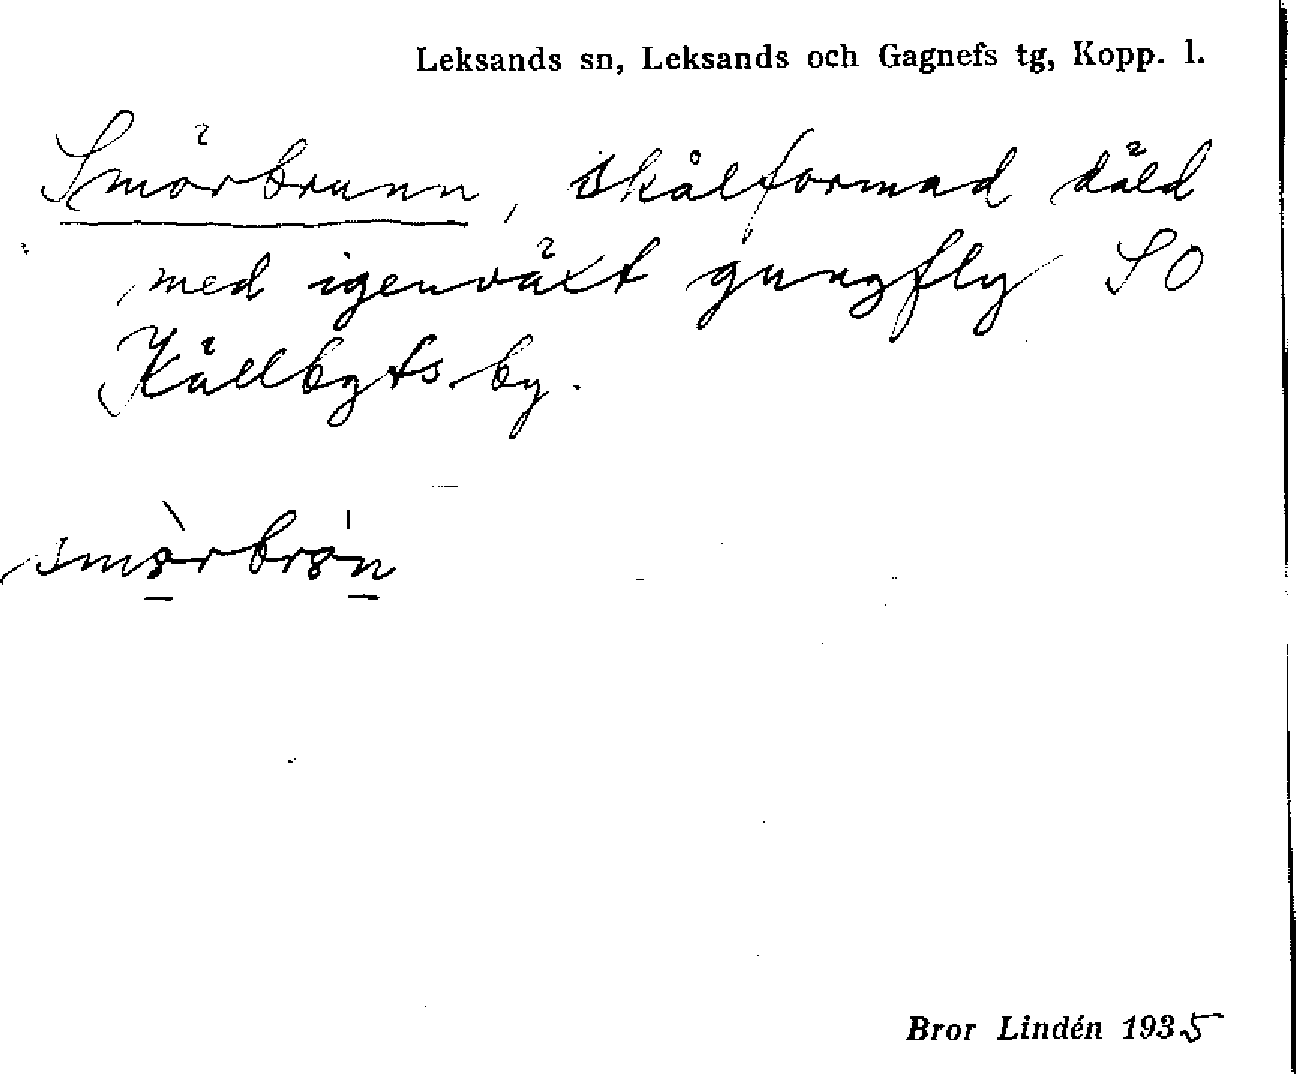 Leksands sn, Leksands och Gagnefs tg, Kopp. l.
Smörbrunn, skålformad däld
med igenväxt gungfly SO
Källbgts by.
smörbrön
Bror Lindén 1935